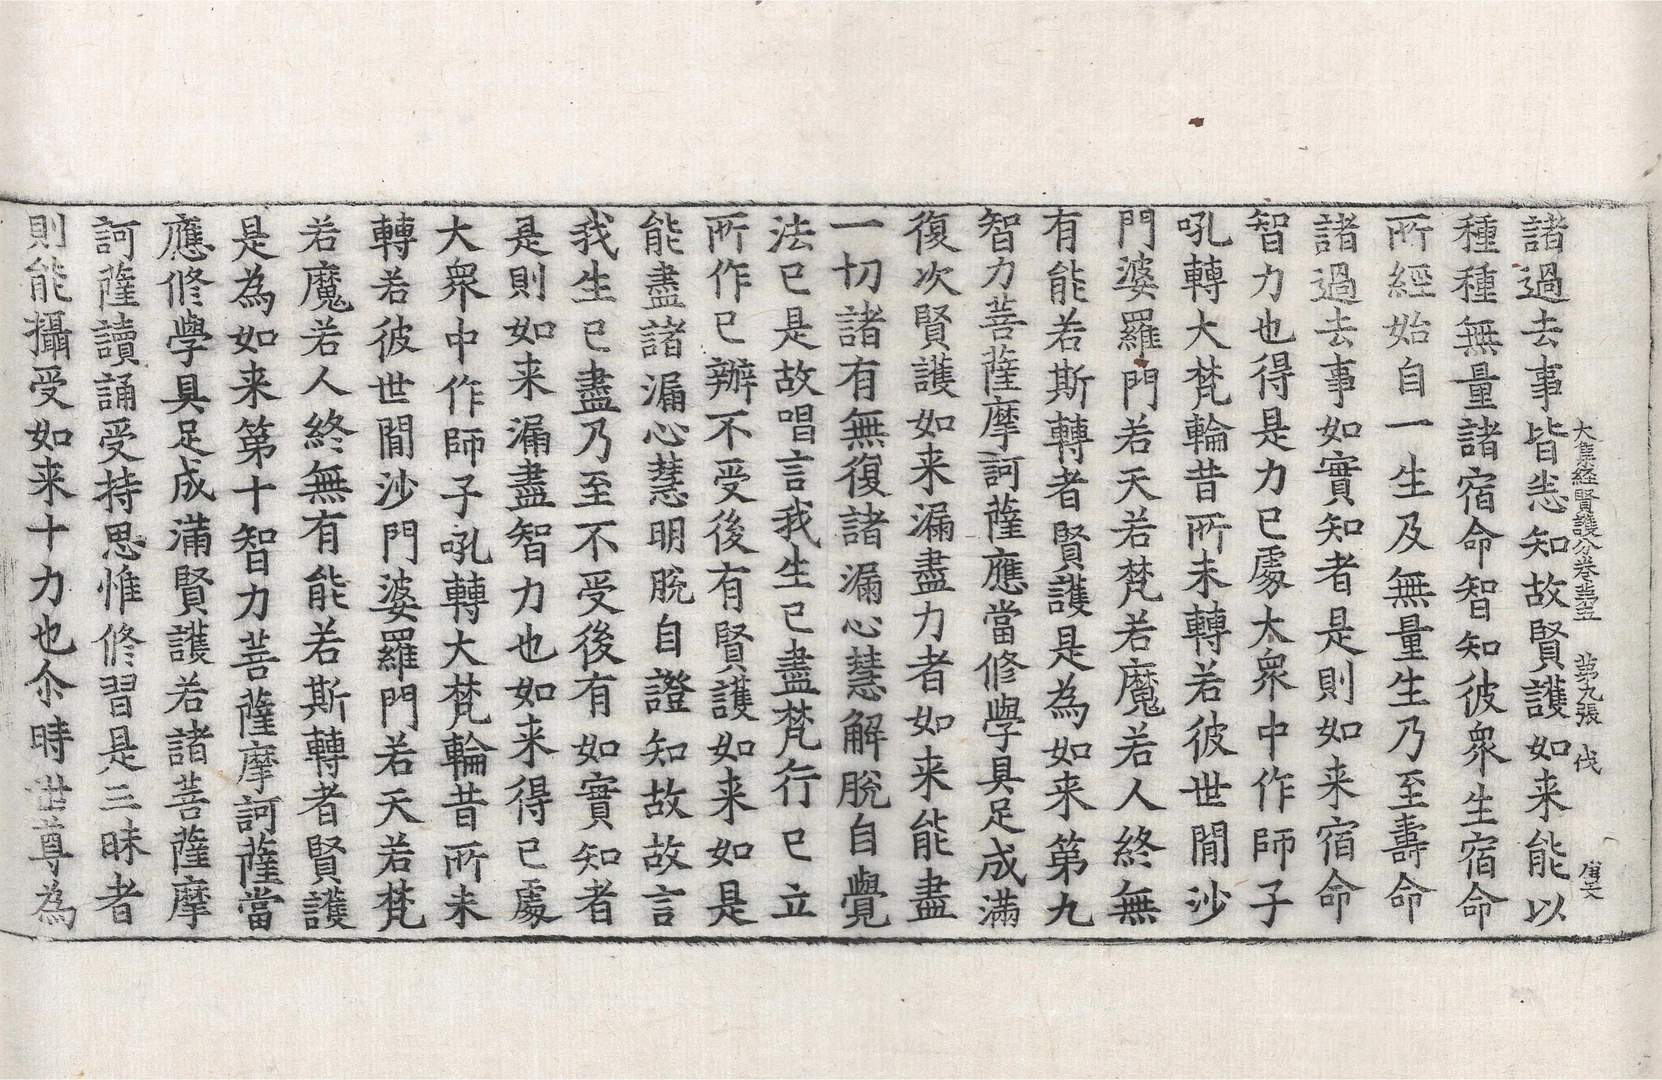 大集經賢護分卷第五 第九張 伐
諸過去事皆悉知故賢護如来能以
種種無量諸宿命智知彼衆生宿命
所經始自一生及無量生乃至壽命
諸過去事如實知者是則如来宿命
智力也得是力已處大衆中作師子
吼轉大梵輪昔所未轉若彼世閒沙
門婆羅門若天若梵若魔若人終無
有能若斯轉者賢護是為如来第九
智力菩薩摩訶薩應當修學具足成滿
復次賢護如来漏盡力者如来能盡
一切諸有無復諸漏心慧解脫自覺
法已是故唱言我生已盡梵行已立
所作已辦不受後有賢護如来如是
能盡諸漏心慧明脫自證知故故言
我生已盡乃至不受後有如實知者
是則如来漏盡智力也如来得已處
大衆中作師子吼轉大梵輪昔所未
轉若彼世閒沙門婆羅門若天若梵
若魔若人終無有能若斯轉者賢護
是為如来第十智力菩薩摩訶薩當
應修學具足成滿賢護若諸菩薩摩
訶薩讀誦受持思惟修習是三昧者
則能攝受如来十力也尒時世尊為